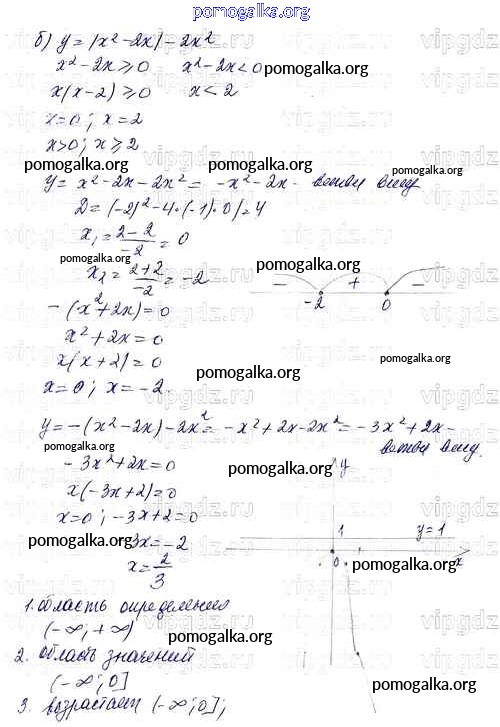 pomogalka.org
б) y = |x² - 2x| - 2x²
x² - 2x ≥ 0   x² - 2x < 0
pomogalka.org
x(x-2) ≥ 0   x < 2
x = 0; x = 2
x > 0; x ≥ 2
pomogalka.org   pomogalka.org
y = x² - 2x - 2x² = -x² - 2x - ветви вниз
D = (-2)² - 4·(-1)·0 = 4
pomogalka.org
x₁ = (2-2)/(-2) = 0
pomogalka.org
pomogalka.org
x₂ = (2+2)/(-2) = -2
- + -
-2 0
-(x² + 2x) = 0
pomogalka.org
x² + 2x = 0
x(x+2) = 0
pomogalka.org
x = 0; x = -2.
pomogalka.org
y = -(x² - 2x) - 2x² = -x² + 2x - 2x² = -3x² + 2x -
ветви вниз.
pomogalka.org
-3x² + 2x = 0
pomogalka.org
y
x(-3x+2) = 0
x = 0; -3x + 2 = 0
1 y = 1
pomogalka.org
3x = -2
x = 2/3
0 x
pomogalka.org
1. область определения
(-∞; +∞)
pomogalka.org
2. область значений
(-∞; 0]
pomogalka.org
3. возрастает (-∞; 0];
pomogalka.org
vipgdz.ru